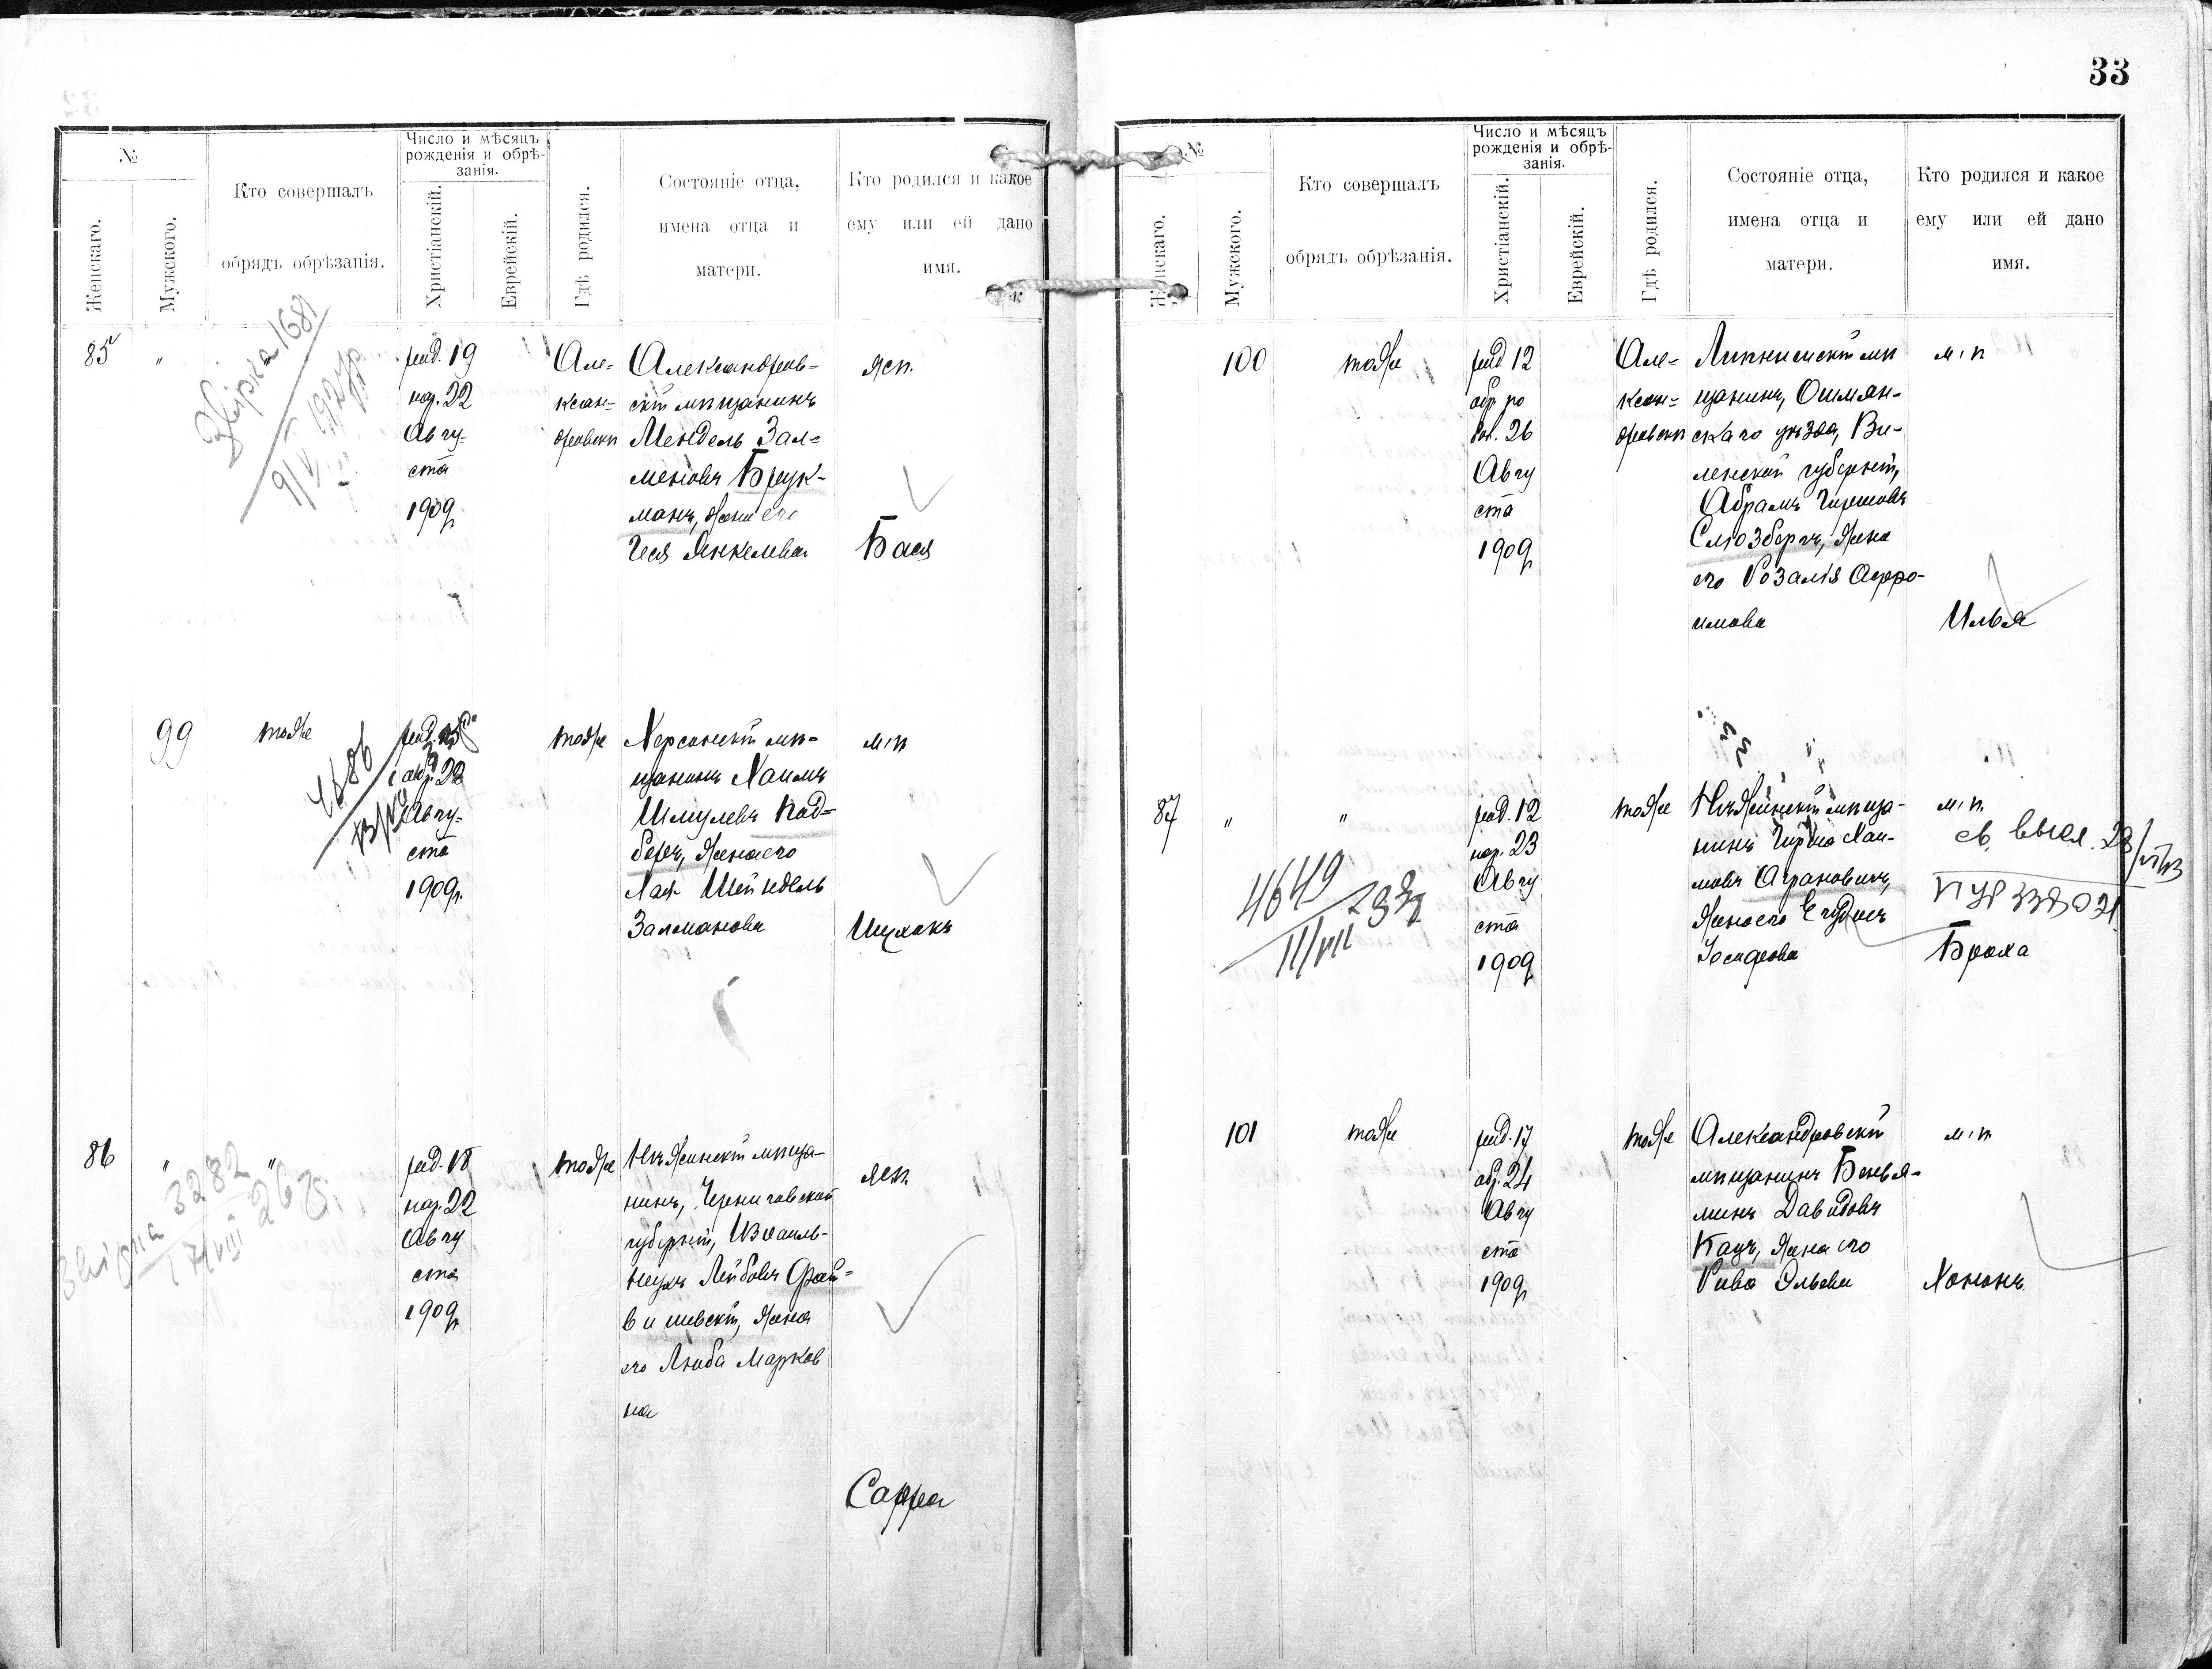 №
Женскаго.
Мужского.
Кто совершалъ
обрядъ обрѣзанія.
Число и мѣсяцъ
рожденія и обрѣ-
занія.
Христіанскій.
Еврейскій.
Гдѣ родился.
Состояніе отца,
имена отца и
матери.
Кто родился и какое
ему или ей дано
имя.
85
"
Звірка 1681
рид. 19
нар. 22
Авгу-
ста
1909
Але-
ксан-
дровскѣ
Александров-
скій мѣщанинъ
Мендель Зал-
меновъ Брук-
манъ, жена его
Янкелева
жен.
Бася
99
тоже
4686
обр. 22
Авгу-
ста
1909г.
тоже
Херсонскій мѣ-
щанинъ Хаимъ
Шмулевъ Под-
березъ, жена его
Лая Шейндель
Залманова
м. п
Ицхокъ
86
"
"
Звірка 3282
17/VIII
рид. 18
нар. 22
Авгу
ста
1909г
тоже
Нѣжинскій мѣща-
нинъ, Черниговской
губерніи,
Лейбовъ Фай-
вишевскій, жена
его Люба Марков
на
жен.
Сарра
33
№
Женскаго.
Мужского.
Кто совершалъ
обрядъ обрѣзанія.
Число и мѣсяцъ
рожденія и обрѣ-
занія.
Христіанскій.
Еврейскій.
Гдѣ родился.
Состояніе отца,
имена отца и
матери.
Кто родился и какое
ему или ей дано
имя.
100
тоже
рид. 12
26
Авгу
ста
1909г
Але-
ксан-
дровскѣ
мѣ
щанинъ, Ошмян-
скаго уѣзда, Ви-
ленской губерніи,
Абрамъ Гиршовъ
Слюзбергъ, жена
его Розалія Афро-
имова
м. п
Илья
87
"
"
4649
11/VII 93
рид. 12
нар. 23
Авгу
ста
1909г
тоже
Нѣжинскій мѣща-
нинъ Гирша Хаи-
мовъ Аграновичъ,
жена его
Іосифова
м. п.
св. высл. 28/VI 93
Броха
101
тоже
рид. 17
обр. 24
Авгу
ста
1909г
тоже
Александровскій
мѣщанинъ Бенья-
минъ Давидовъ
Кацъ, жена его
Рива Эльева
м. п.
Хононъ